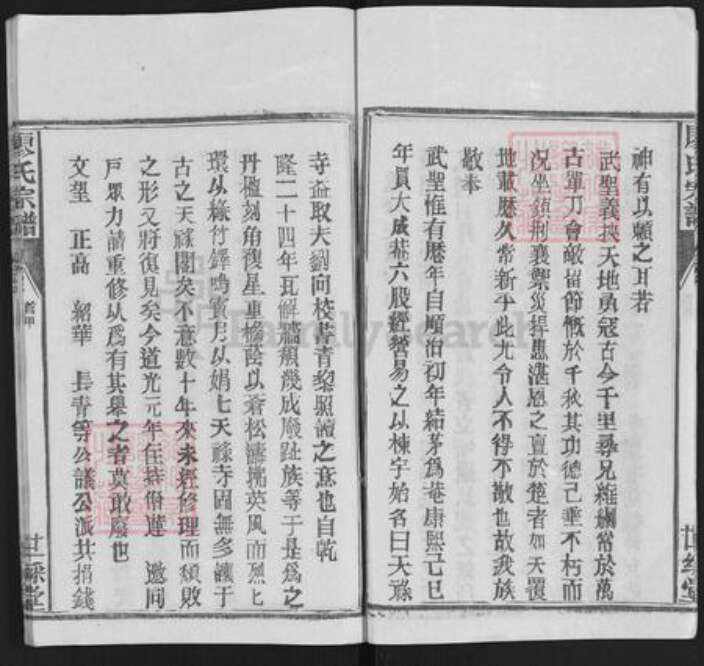 神有以賴之耳若
武聖義挾天地勇冠古今千里尋兄維綱常於萬
古單刀會敵留節慨於千秋其功德已垂不朽而
況坐鎮荆襄禦災捍患湛恩之亶於楚者如天覆
地載歷久常新乎此尤令人不得不敬也故我族
敬奉
武聖惟有歷年自順治初年結茅爲菴康熙己巳
年貟大成菴六股經營易之以棟宇始名曰天祿
寺益取夫劉向校書青黎照讀之意也自乾
隆二十四年瓦解牆頹幾成廢趾族等于是爲之
丹楹刻角複星重檐蔭以蒼松濤撓英風而烈七
環以綠竹鐸鳴賓月以娟七天祿寺固無多讓于
古之天祿閣矣不意數十年來未經修理而頹敗
之形又將復見矣今道光元年住持俻達 邀同
戸眾力請重修以爲有其舉之者莫敢廢也
文望 正高 紹華 長青等公議公派共捐錢
廖氏宗譜
世綵堂
FamilySearch